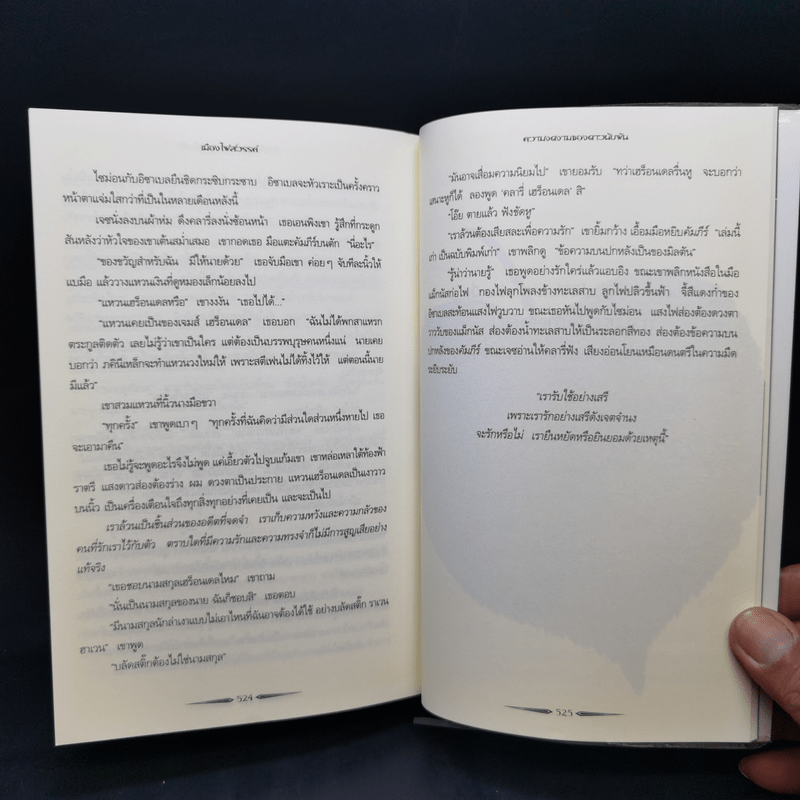 เมืองไฟสวรรค์
ไซม่อนกับอิซาเบลยืนชิดกระซิบกระซาบ อิซาเบลจะหัวเราะเป็นครั้งคราว
หน้าตาแจ่มใสกว่าที่เป็นในหลายเดือนหลังนี้
เจซนั่งลงบนผ้าห่ม ดึงคลารี่ลงนั่งซ้อนหน้า เธอเอนพิงเขา รู้สึกที่กระดูก
สันหลังว่าหัวใจของเขาเต้นสม่ำเสมอ เขากอดเธอ มือแตะคัมภีร์บนตัก “นี่อะไร”
“ของขวัญสำหรับฉัน มีให้นายด้วย” เธอจับมือเขา ค่อยๆ จับทีละนิ้วให้
แบมือ แล้ววางแหวนเงินที่ดูหมองเล็กน้อยลงไป
“แหวนเฮร็อนเดลหรือ” เขางงงัน “เธอไปได้...”
“แหวนเคยเป็นของเจมส์ เฮร็อนเดล” เธอบอก “ฉันไม่ได้พกสาแหรก
ตระกูลติดตัว เลยไม่รู้ว่าเขาเป็นใคร แต่ต้องเป็นบรรพบุรุษคนหนึ่งแน่ นายเคย
บอกว่า ภคินีเหล็กจะทำแหวนวงใหม่ให้ เพราะสตีเฟนไม่ได้ทิ้งไว้ให้ แต่ตอนนี้นาย
มีแล้ว”
เขาสวมแหวนที่นิ้วนางมือขวา
“ทุกครั้ง” เขาพูดเบาๆ “ทุกครั้งที่ฉันคิดว่ามีส่วนใดส่วนหนึ่งหายไป เธอ
จะเอามาคืน”
เธอไม่รู้จะพูดอะไรจึงไม่พูด แค่เอี้ยวตัวไปจูบแก้มเขา เขาหล่อเหลาใต้ท้องฟ้า
ราตรี แสงดาวส่องต้องร่าง ผม ดวงตาเป็นประกาย แหวนเฮร็อนเดลเป็นเงาวาว
บนนิ้ว เป็นเครื่องเตือนใจถึงทุกสิ่งทุกอย่างที่เคยเป็น และจะเป็นไป
เราล้วนเป็นชิ้นส่วนของอดีตที่จดจำ เราเก็บความหวังและความกลัวของ
คนที่รักเราไว้กับตัว ตราบใดที่มีความรักและความทรงจำก็ไม่มีการสูญเสียอย่าง
แท้จริง
“เธอชอบนามสกุลเฮร็อนเดลไหม” เขาถาม
“นั่นเป็นนามสกุลของนาย ฉันก็ชอบสิ” เธอตอบ
“มีนามสกุลนักล่าเงาแบบไม่เอาไหนที่ฉันอาจต้องได้ใช้ อย่างบลัดสติ๊ก ราเวน
ฮาเวน” เขาพูด
“บลัดสติ๊กต้องไม่ใช่นามสกุล”
524
ความงดงามของดาวนับพัน
“มันอาจเสื่อมความนิยมไป” เขายอมรับ “ทว่าเฮร็อนเดลรื่นหู จะบอกว่า
เสนาะหูก็ได้ ลองพูด ‘คลารี่ เฮร็อนเดล’ สิ”
“โอ๊ย ตายแล้ว ฟังขัดหู”
“เราล้วนต้องเสียสละเพื่อความรัก” เขายิ้มกว้าง เอื้อมมือหยิบคัมภีร์ “เล่มนี้
เก่า เป็นฉบับพิมพ์เก่า” เขาพลิกดู “ข้อความบนปกหลังเป็นของมิลตัน”
“รู้น่าว่านายรู้” เธอพูดอย่างรักใคร่และแอบอิง ขณะเขาพลิกหนังสือในมือ
แม็กนัสก่อไฟ กองไฟลุกโพลงข้างทะเลสาบ ลูกไฟปลิวขึ้นฟ้า จี้สีแดงก่ำของ
อิซาเบลสะท้อนแสงไฟวูบวาบ ขณะเธอหันไปพูดกับไซม่อน แสงไฟส่องต้องดวงตา
วาววับของแม็กนัส ส่องต้องน้ำทะเลสาบให้เป็นระลอกสีทอง ส่องต้องข้อความบน
ปกหลังของคัมภีร์ ขณะเจซอ่านให้คลารี่ฟัง เสียงอ่อนโยนเหมือนดนตรีในความมืด
ระยิบระยับ
“เรารับใช้อย่างเสรี
เพราะเรารักอย่างเสรีดังเจตจำนง
จะรักหรือไม่ เรายืนหยัดหรือยินยอมด้วยเหตุนี้”
525